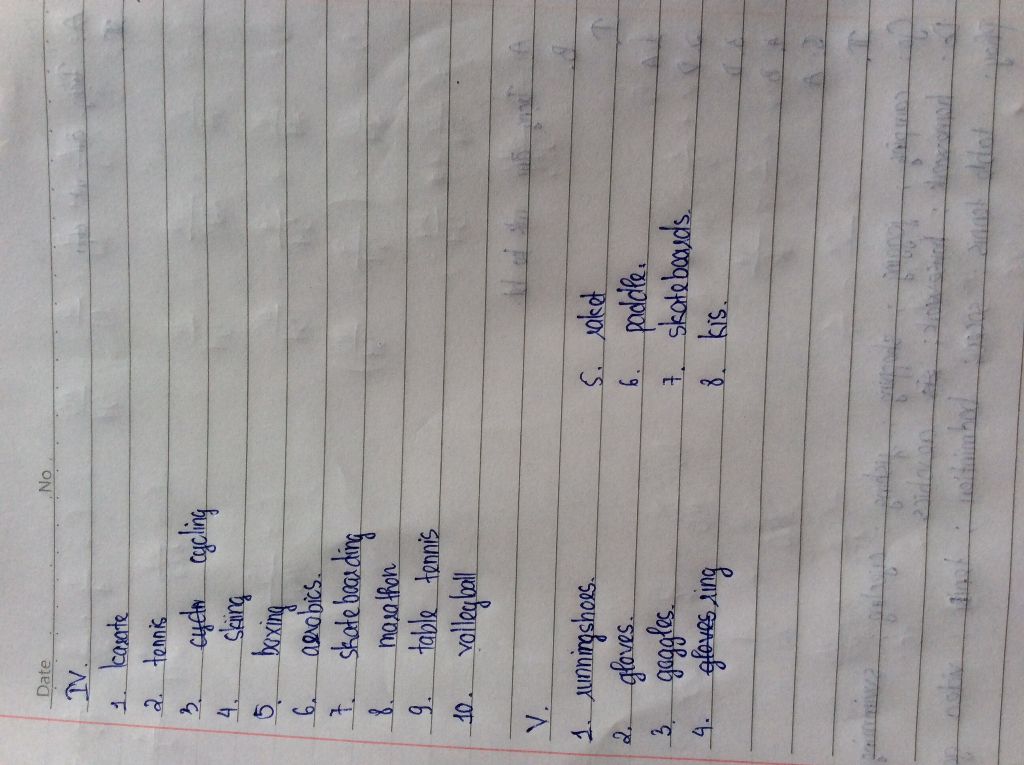 Date No
IV.
1. karate
2. tennis
3. cycling
4. skiing
5. boxing
6. aerobics.
7. skateboarding
8. marathon
9. table tennis
10. volleyball
V.
1. runningshoes. 5. raket
2. gloves. 6. paddle.
3. goggles. 7. skateboards.
4. gloves ring 8. kis.